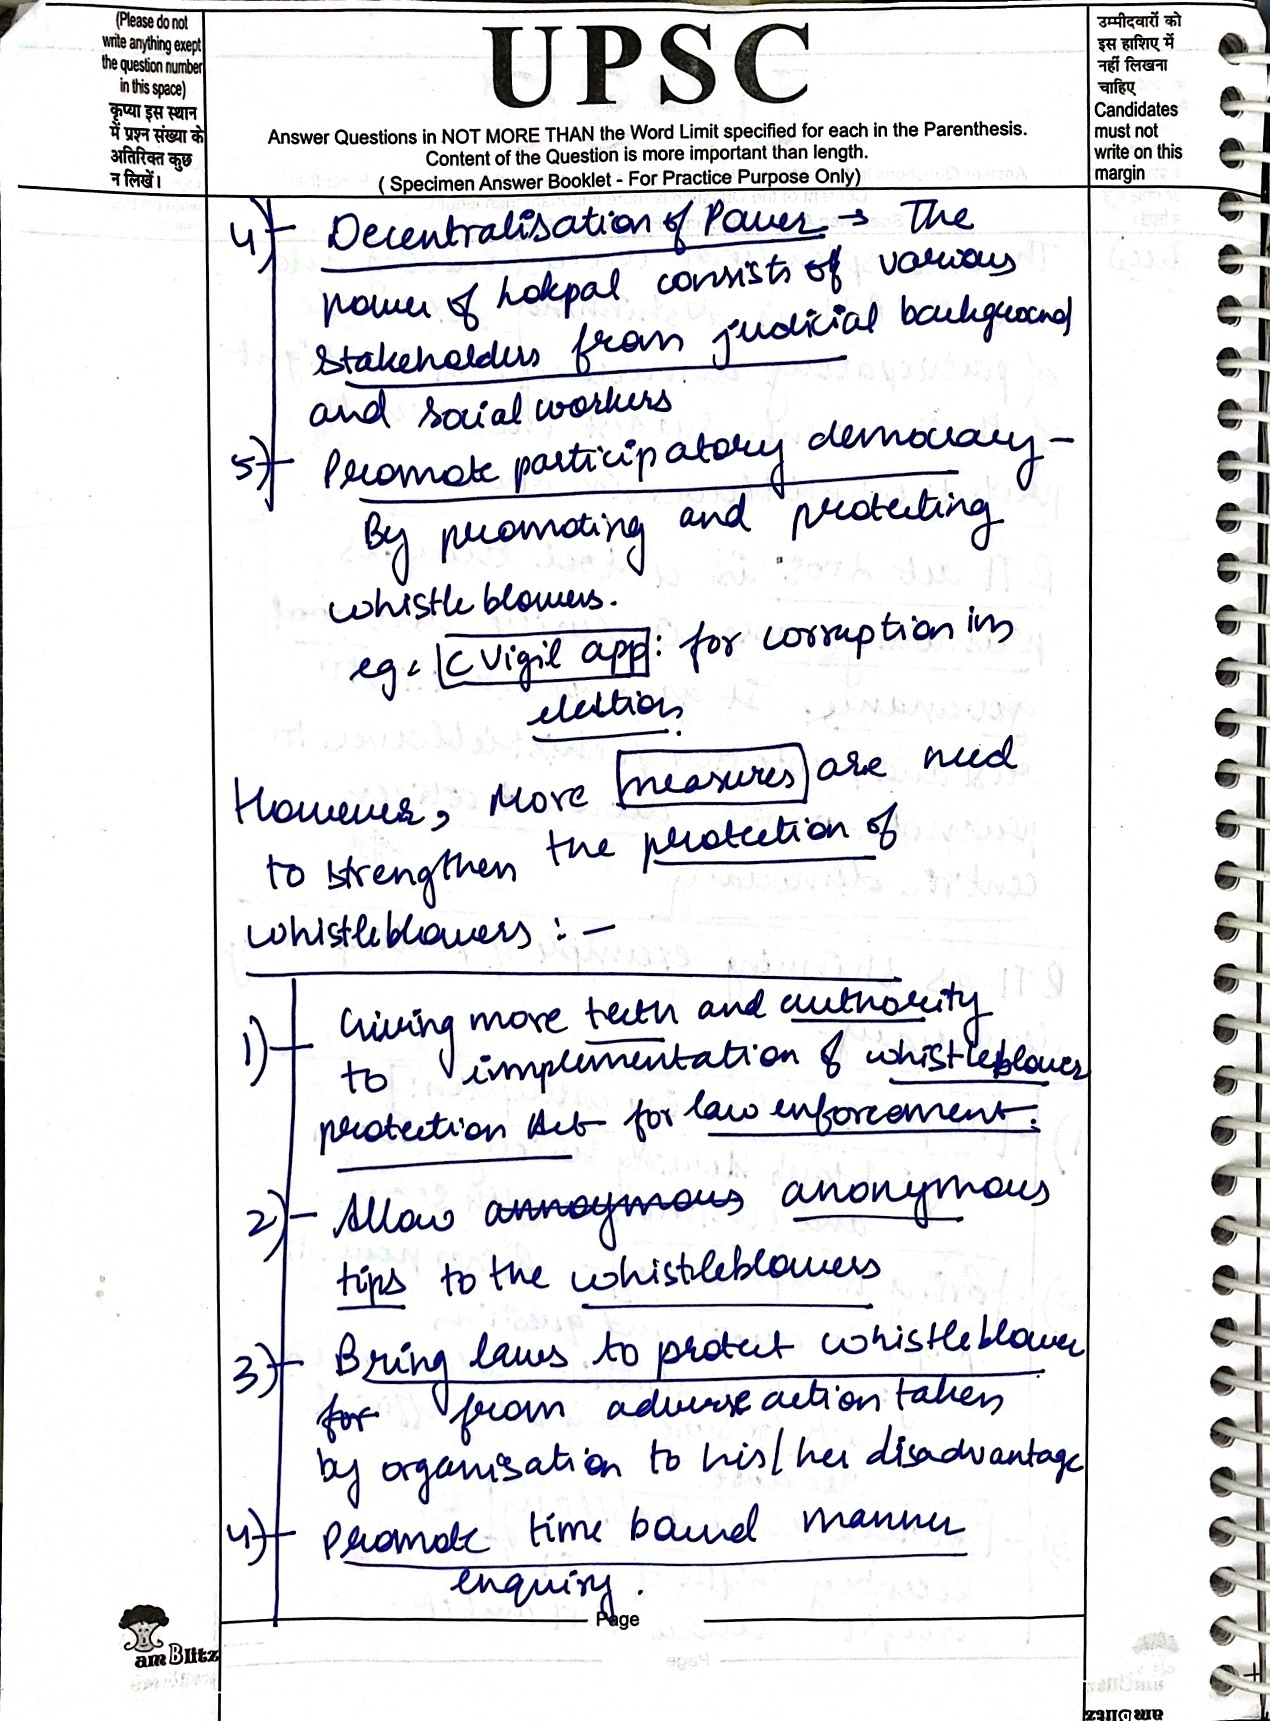 (Please do not
write anything exept
the question number
in this space)
कृप्या इस स्थान
में प्रश्न संख्या के
अतिरिक्त कुछ
न लिखें।
UPSC
Answer Questions in NOT MORE THAN the Word Limit specified for each in the Parenthesis.
Content of the Question is more important than length.
( Specimen Answer Booklet - For Practice Purpose Only)
उम्मीदवारों को
इस हाशिए में
नहीं लिखना
चाहिए
Candidates
must not
write on this
margin
4) Decentralisation of Power → The
power of Lokpal consists of various
stakeholders from judicial background
and social workers
5) Promote participatory democracy -
By promoting and protecting
whistle blowers.
eg: C Vigil app : for corruption in
election.
However, More measures are need
to strengthen the protection of
whistleblowers : -
1) Giving more teeth and authority
to implementation of whistleblower
protection Act for law enforcement.
2) Allow annoymous anonymous
tips to the whistleblowers
3) Bring laws to protect whistleblower
for from adverse action taken
by organisation to his/her disadvantage
4) Promote time bound manner
enquiry.
Page
am Blitz